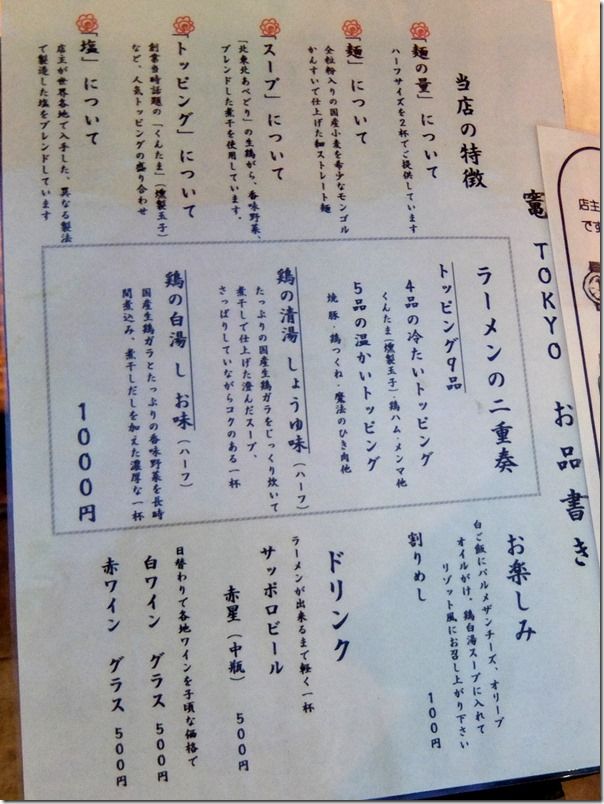 竈 TOKYO お品書き
当店の特徴
「麺の量」について
ハーフサイズを2杯でご提供しています
「麺」について
全粒粉入りの国産小麦を希少なモンゴル
かんすいで仕上げた細ストレート麺
「スープ」について
「北東北あべどり」の生鶏がら、香味野菜、
ブレンドした煮干を使用しています。
「トッピング」について
創業当時話題の「くんたま」(燻製玉子)
など、人気トッピングの盛り合わせ
「塩」について
店主が世界各地で入手した、異なる製法
で製造した塩をブレンドしています
ラーメンの二重奏
トッピング9品
4品の冷たいトッピング
くんたま(燻製玉子)・鶏ハム・メンマ他
5品の温かいトッピング
焼豚・鶏つくね・魔法のひき肉他
鶏の清湯 しょうゆ味(ハーフ)
たっぷりの国産生鶏ガラをじっくり炊いて
煮干しで仕上げた澄んだスープ、
さっぱりしていながらコクのある一杯
鶏の白湯 しお味(ハーフ)
国産生鶏ガラとたっぷりの香味野菜を長時
間煮込み、煮干しだしを加えた濃厚な一杯
1000円
お楽しみ
白ご飯にパルメザンチーズ、オリーブ
オイルがけ。鶏白湯スープに入れて
リゾット風にお召し上がり下さい
割りめし 100円
ドリンク
ラーメンが出来るまで軽く一杯
サッポロビール
赤星(中瓶) 500円
日替わりで各地ワインを手頃な価格で
白ワイン グラス 500円
赤ワイン グラス 500円
店主
です